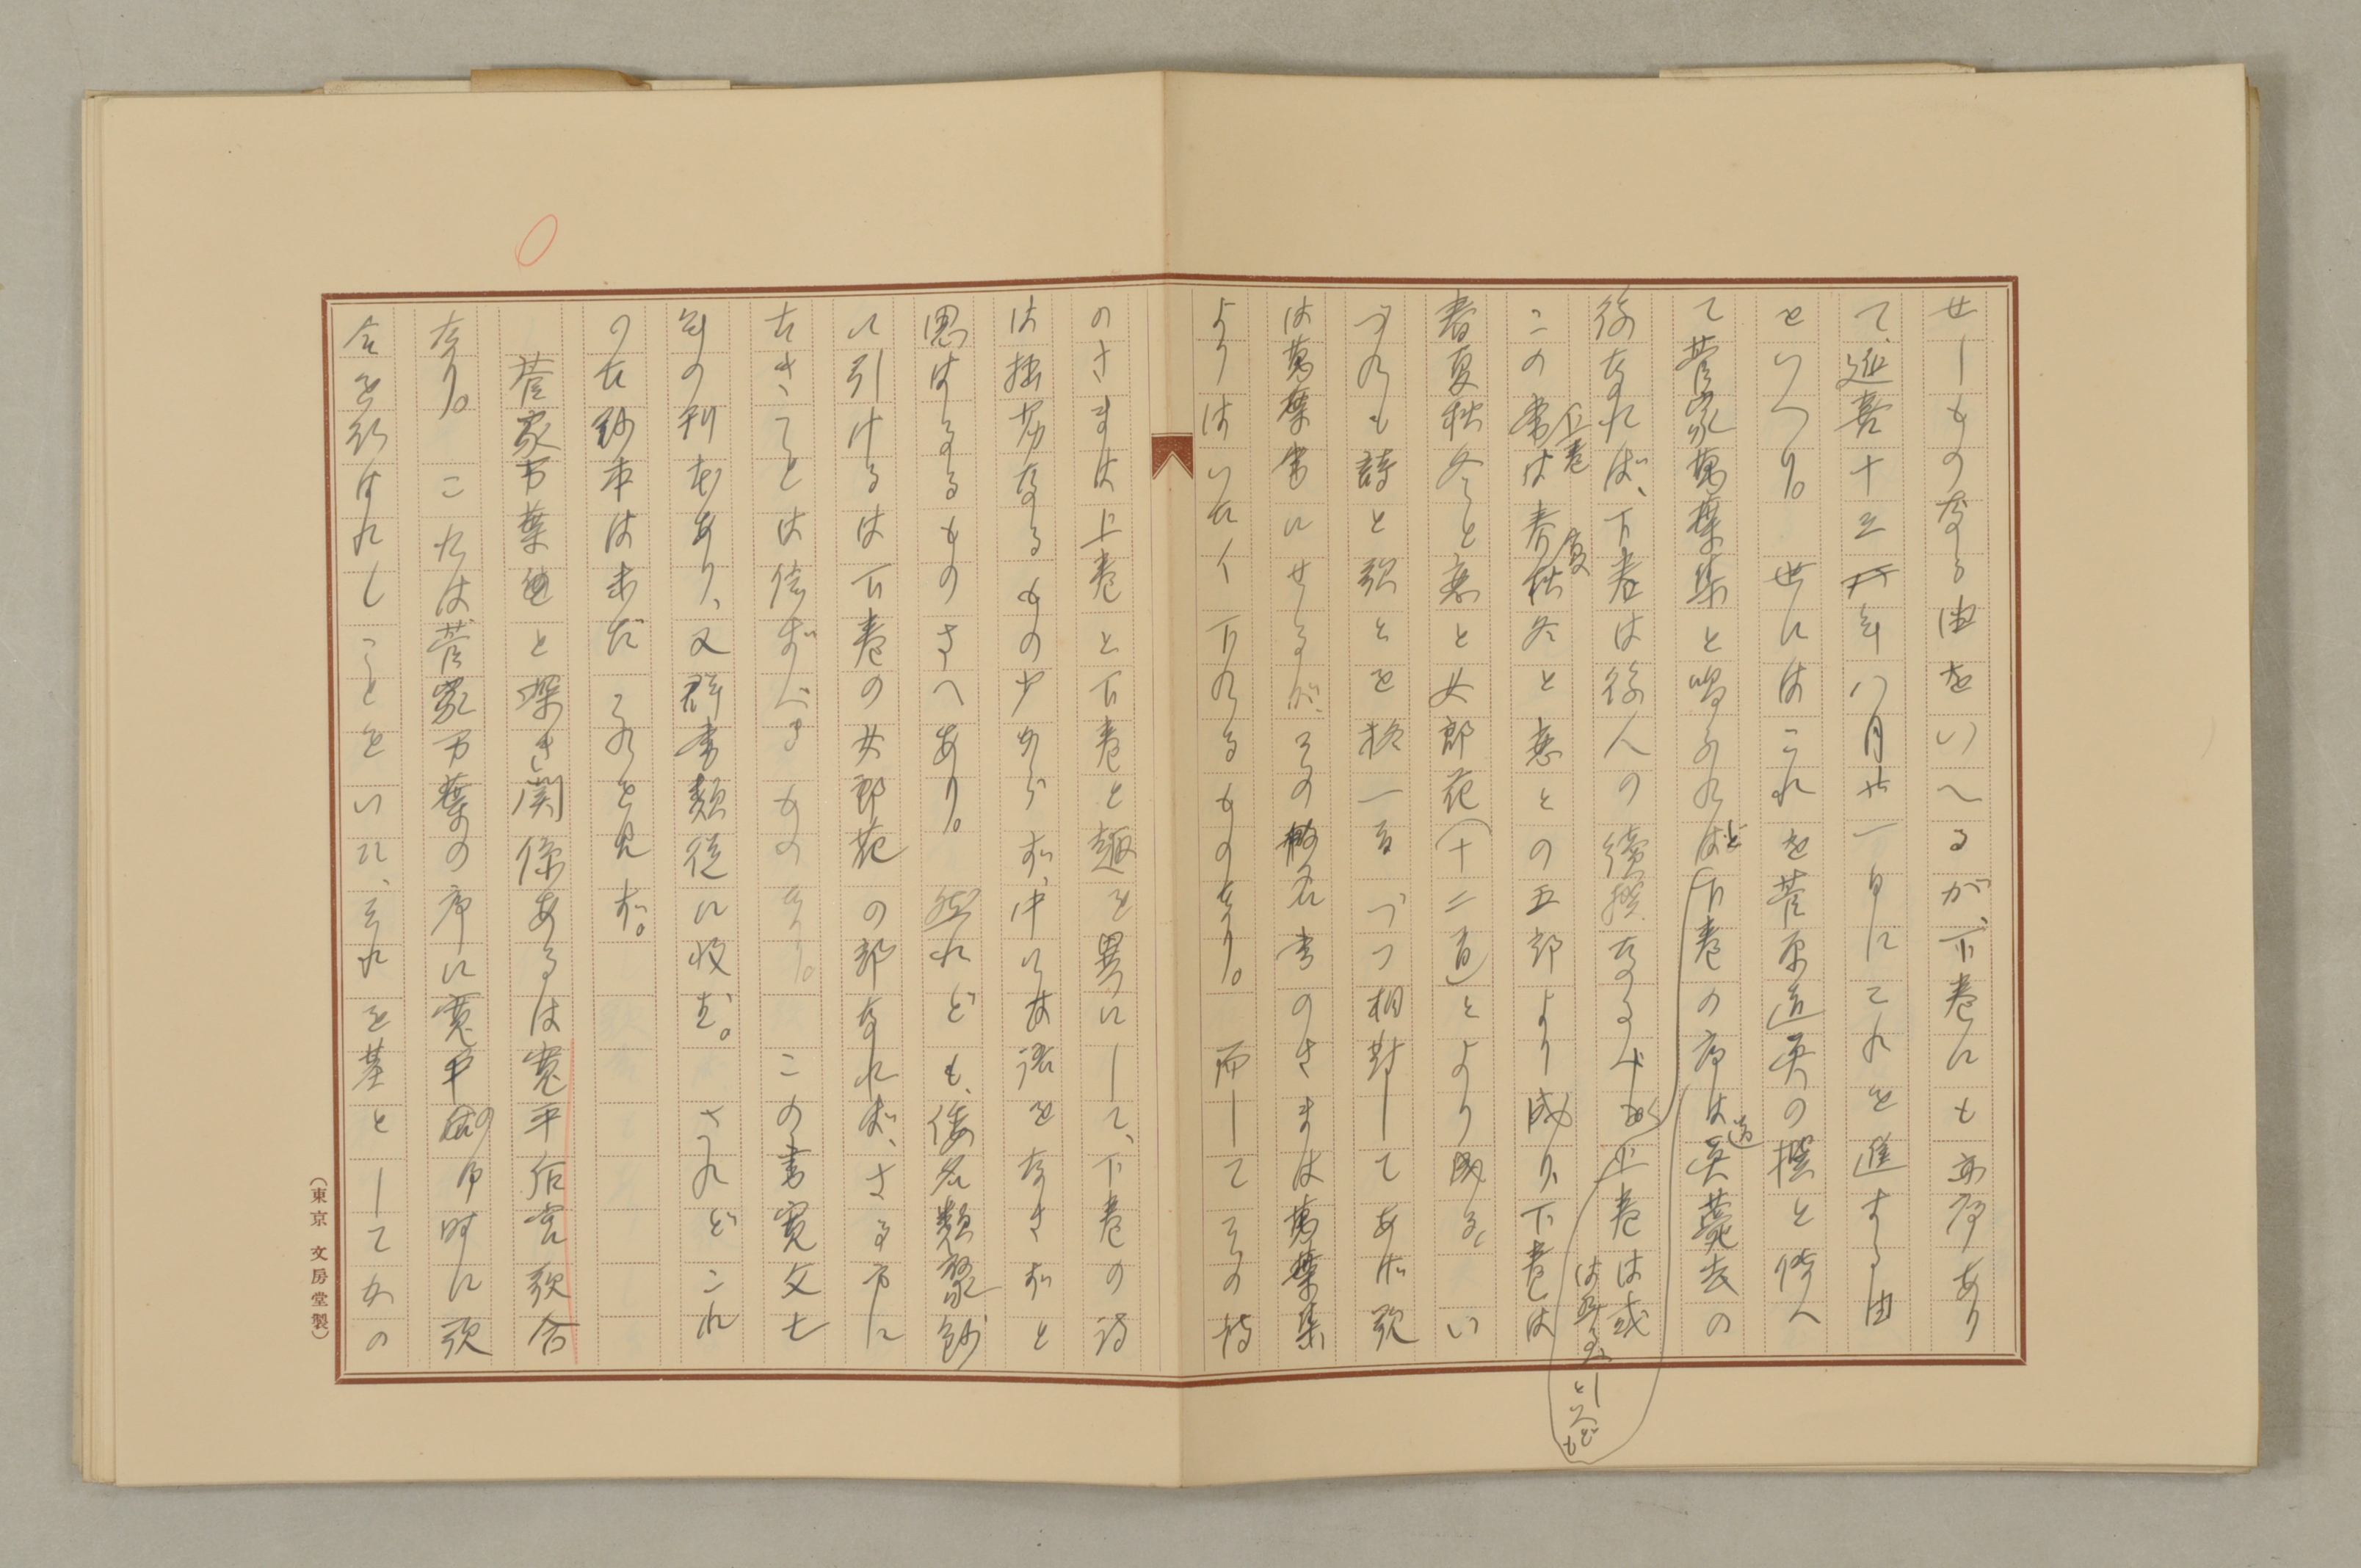 せしものなる由をいへるが、下巻にも亦序あり
て、延喜十三年八月廿一日にこれを進する由
をいへり。世にはこれを菅原道真の撰と傳へ
て菅家萬葉集と唱ふれど下巻の序は道真薨去の
後なれば、下巻は後人の續撰なるべし
上巻は或は然るべしといへども
この書上巻は春夏秋冬と恋との五部より成り、下巻は
春夏秋冬と恋と女郎花(十二首)とより成る。い
づれも詩と歌とを格一首づつ相對してあげ歌
は萬葉書にせるが、その假名書のさまは萬葉集
よりはいたく下れるものなり。而してその詩
のさまは上巻と下巻と趣を異にして、下巻の詩
は拙劣なるもの少からず、中には語をなさずと
思はるるものさへあり。然れども、倭名類聚鈔
に引けるは下巻の女郎花の部なれば、さる方に
古きことは信ずべきものなり。この書寛文七
年の刊本あり、又群書類従に收む。されどこれ
の古鈔本は未だこれを見ず。
菅家万葉集と深き関係あるは寛平后宮歌合
なり。これは菅家万葉の序に寛平の御時に歌
合を行はれしことをいひ、それを基としてかの
(東京 文房堂製)